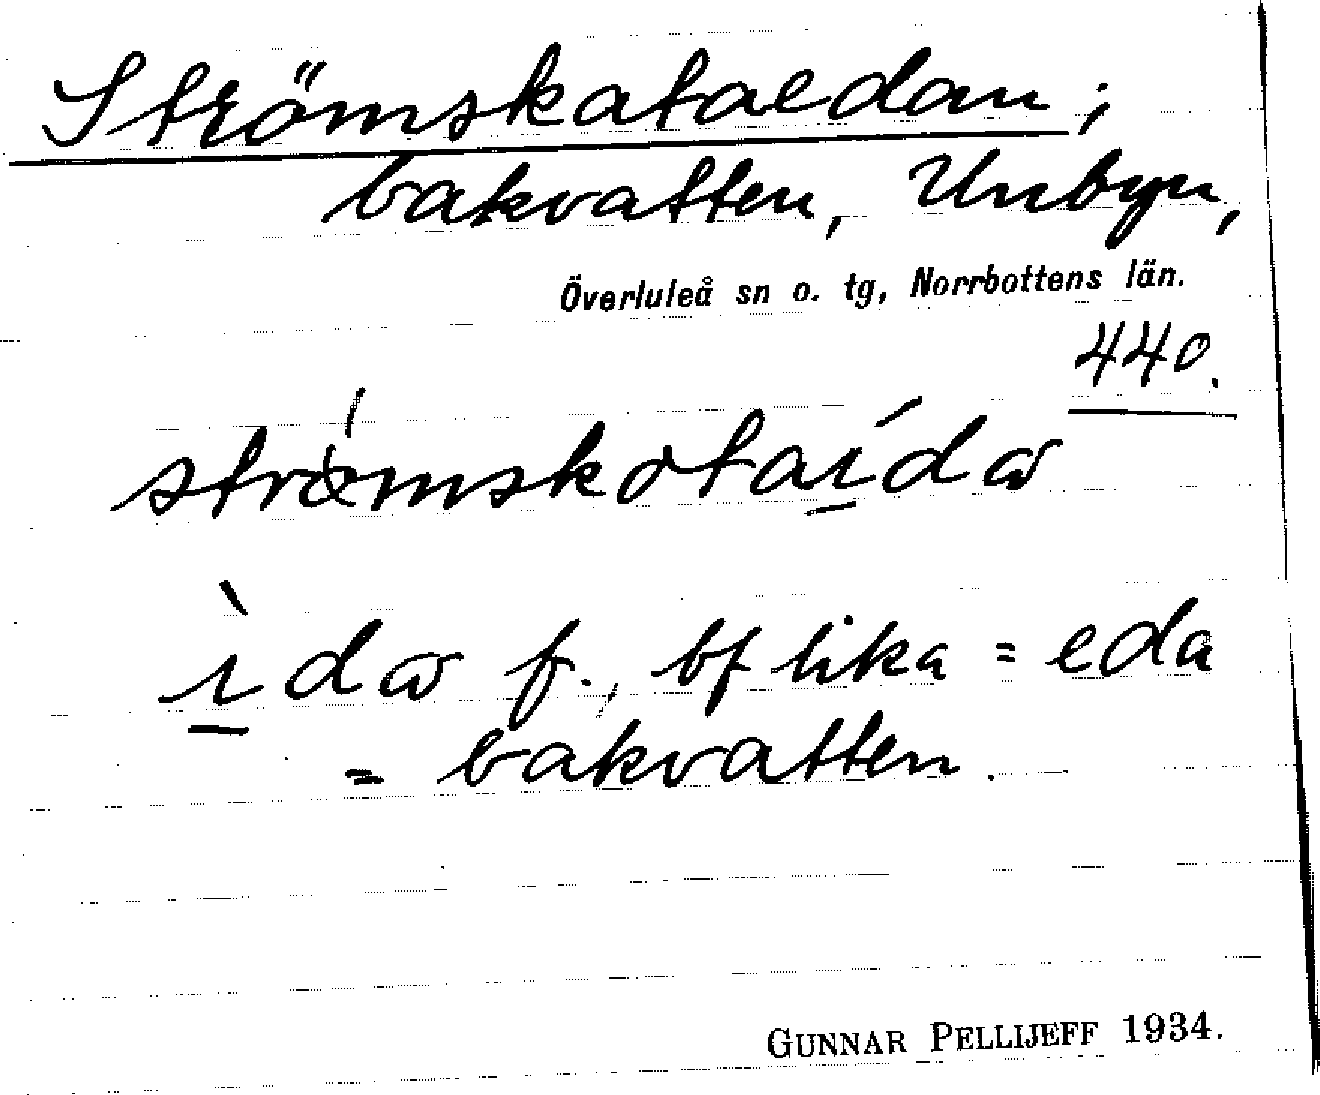 Strömskataedan;
bakvatten, Unbyn,
Överluleå sn o. tg, Norrbottens län.
440.
strömskataída
ìda f., bf lika = eda
= bakvatten.
GUNNAR PELLIJEFF 1934.